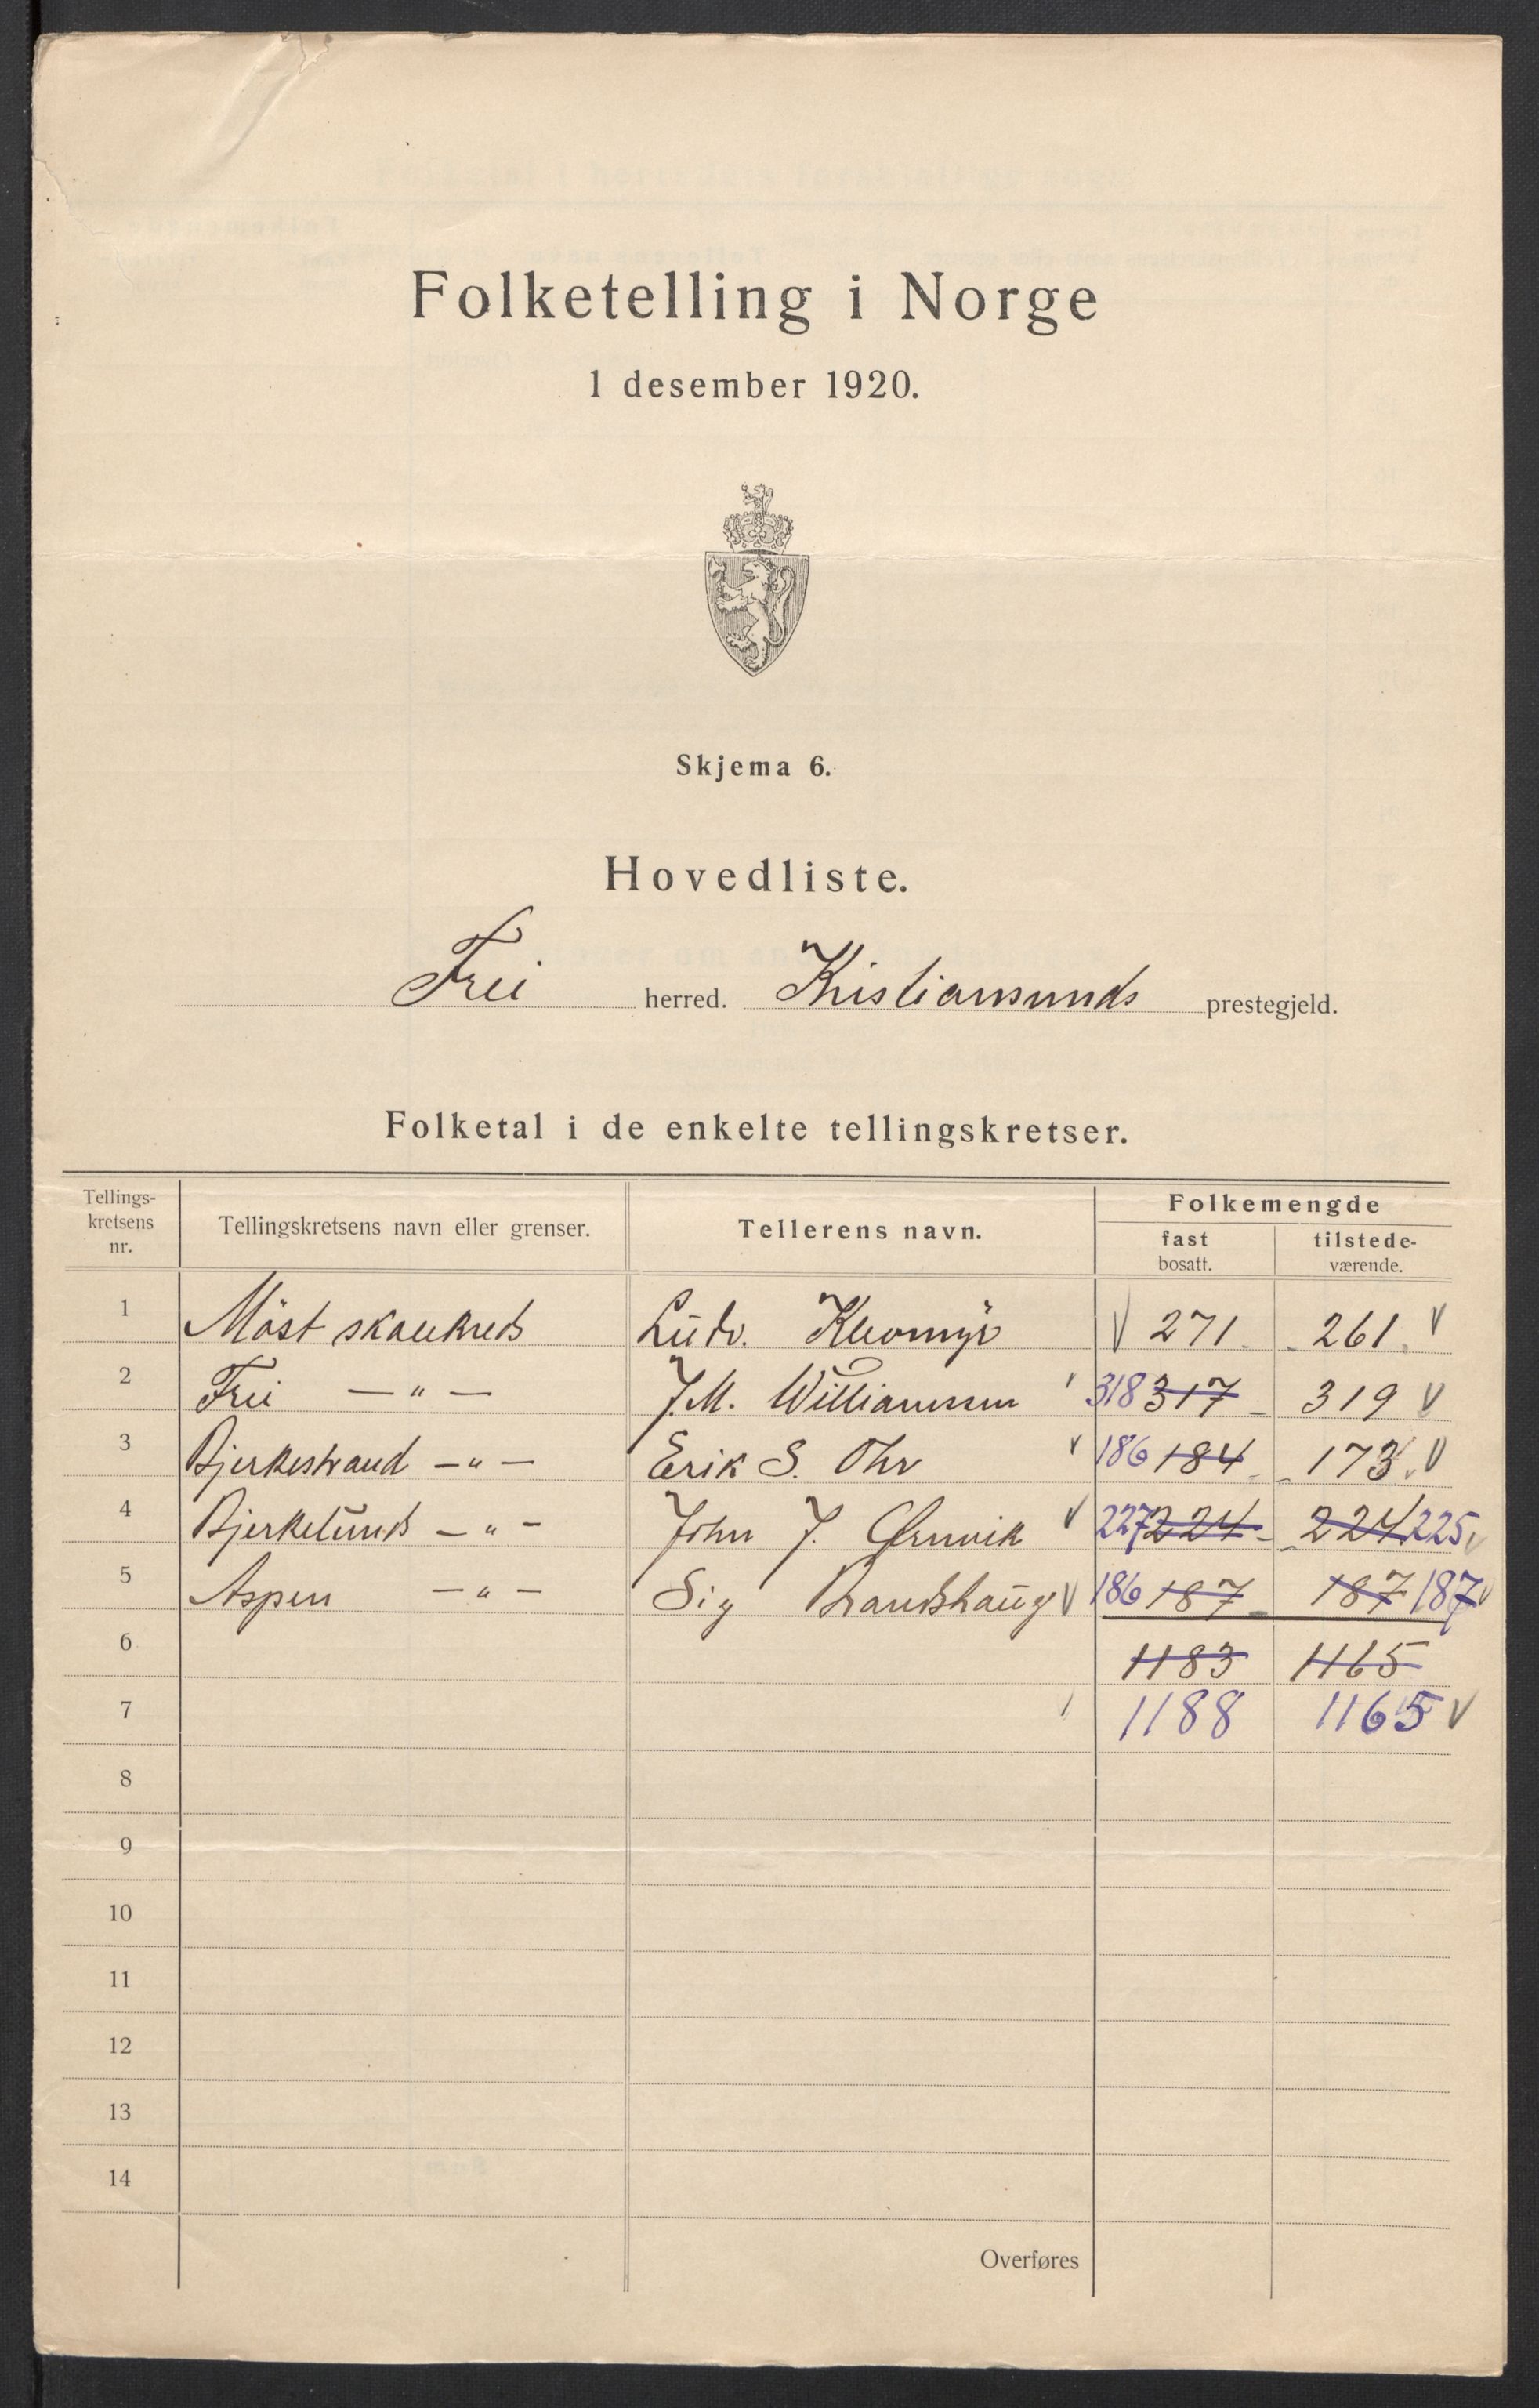 Folketelling i Norge
1 desember 1920.
Skjema 6.
Hovedliste.
Frei herred. Kristiansunds prestegjeld.
Folketal i de enkelte tellingskretser.
Tellings-
kretsens
nr.
Tellingskretsens navn eller grenser.
Tellerens navn.
Folkemengde
fast
bosatt.
tilstede-
værende.
1 Möst Ludv. 271 261
2 Frei — " — J. M. Williamssen 318 317 319
3 Bjerkestrand — " — Erik S. Ohr 186 184 173
4 Bjerkelunds — " — John J. 227 224 224 225
5 Aspen — " — Sig Brandshaug 186 187 187 187
6 1183 1165
7 1188 1165
8
9
10
11
12
13
14
Overføres